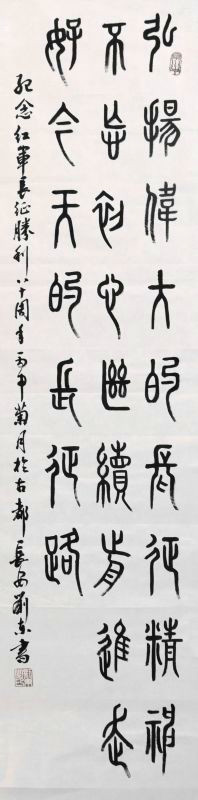 弘揚偉大的長征精神
不忘初心繼續前進走
好今天的長征路
紀念紅軍長征勝利八十周年丙申菊月於古都長安劉東書